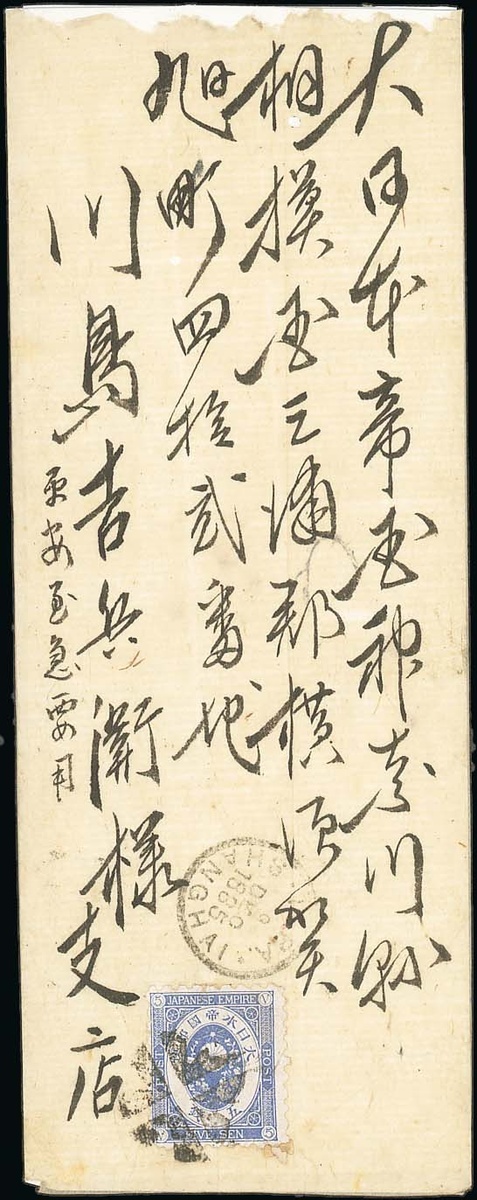 大日本帝国神奈川縣
相摸国三浦郡横須賀
旭町四拾弐番地
川島吉兵衛様支店
平安至急要用
I.J.P.A.
SHANGHAI
1885
DEC
JAPANESE EMPIRE
大日本帝国郵
POST
POST
五
FIVE SEN
5
5